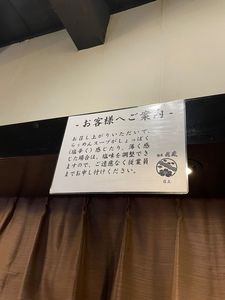 - お客様へご案内 -
お召し上がりいただいて、
らぅめんスープがしょっぱく
(塩辛く)感じたり、薄く感
じた場合は、塩味を調整でき
ますので、ご遠慮なく従業員
までお申し付けください。
店主